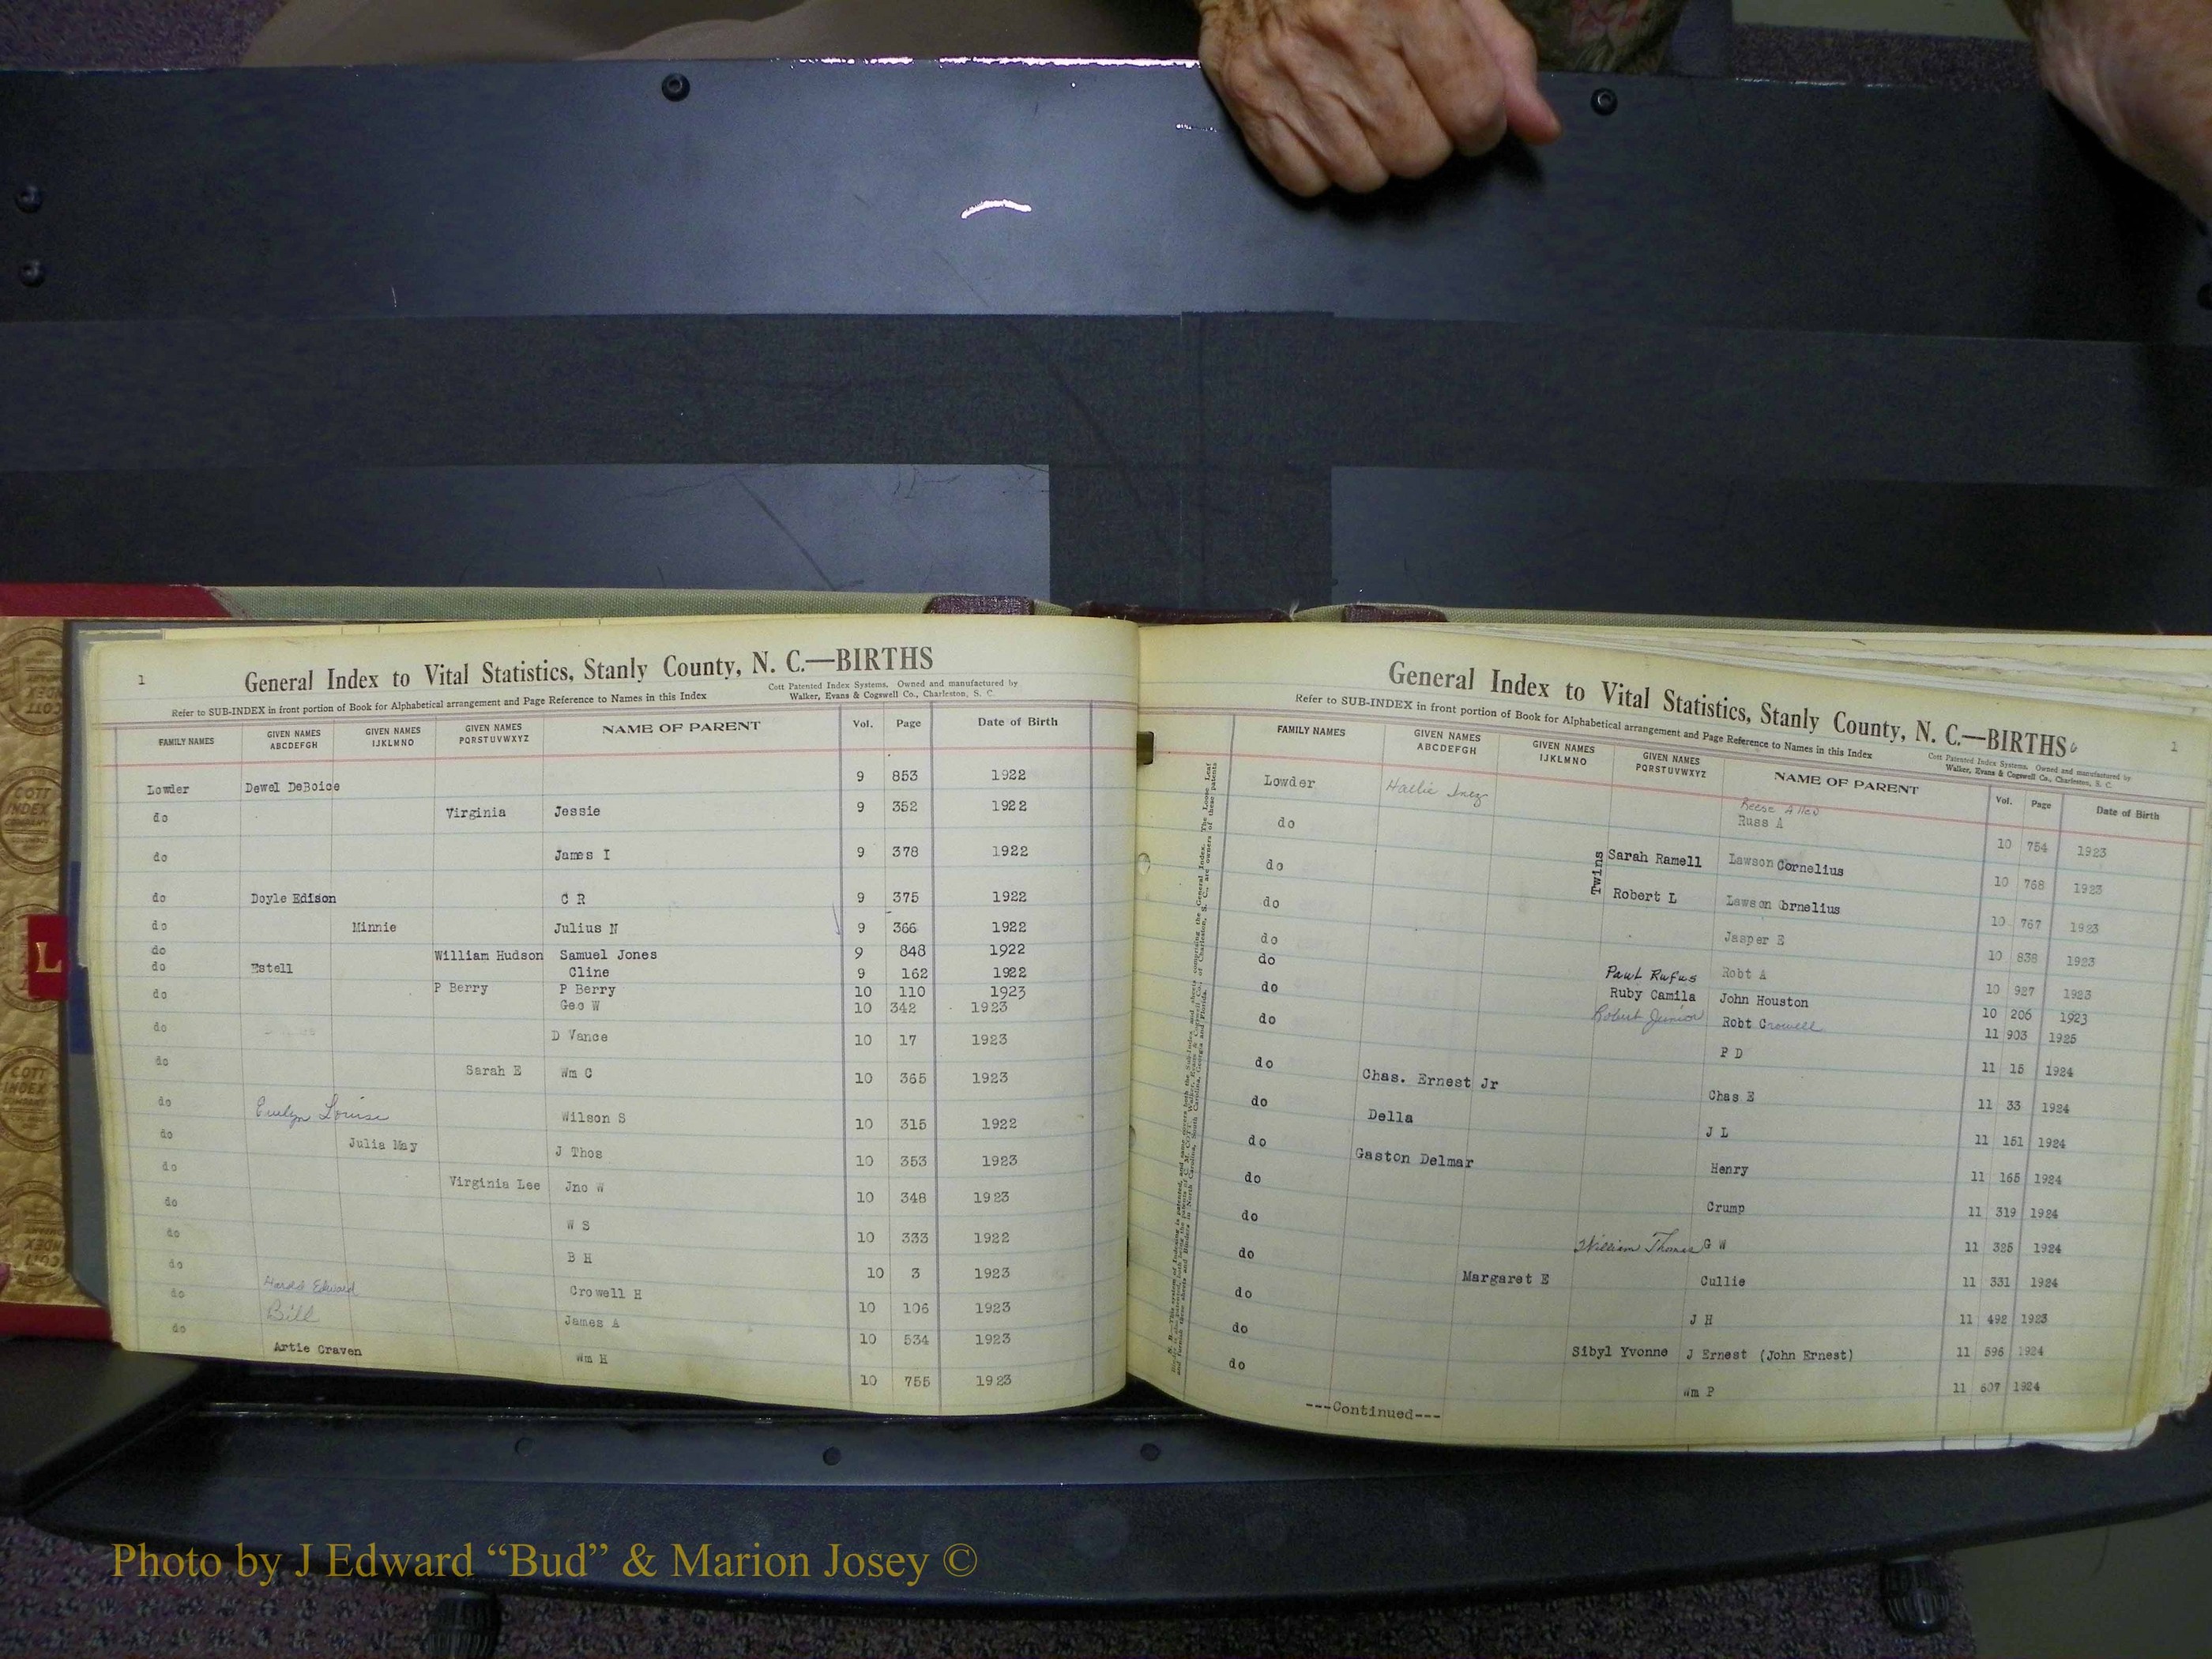 1
General Index to Vital Statistics, Stanly County, N. C.—BIRTHS
Cott Patented Index Systems, Owned and manufactured by
Walker, Evans & Cogswell Co., Charleston, S. C.
Refer to SUB-INDEX in front portion of Book for Alphabetical arrangement and Page Reference to Names in this Index
FAMILY NAMES GIVEN NAMES ABCDEFGH GIVEN NAMES IJKLMNO GIVEN NAMES PQRSTUVWXYZ NAME OF PARENT Vol. Page Date of Birth
Lowder Dewel DeBoice 9 853 1922
do Virginia Jessie 9 352 1922
do James I 9 378 1922
do Doyle Edison C R 9 375 1922
do Minnie Julius N 9 366 1922
do William Hudson Samuel Jones 9 848 1922
do Estell Cline 9 162 1922
P Berry P Berry 10 110 1923
do Geo W 10 342 1923
do D Vance 10 17 1923
do Sarah E Wm C 10 365 1923
do Evelyn Louise Wilson S 10 315 1922
do Julia May J Thos 10 353 1923
do Virginia Lee Jno W 10 348 1923
do W S 10 333 1922
do B H 10 3 1923
do Harold Edward Crowell H 10 106 1923
do Bill James A 10 534 1923
do Artie Craven Wm H 10 755 1923
L
General Index to Vital Statistics, Stanly County, N. C.—BIRTHS
1
Refer to SUB-INDEX in front portion of Book for Alphabetical arrangement and Page Reference to Names in this Index
Cott Patented Index Systems, Owned and manufactured by
Walker, Evans & Cogswell Co., Charleston, S. C.
FAMILY NAMES GIVEN NAMES ABCDEFGH GIVEN NAMES IJKLMNO GIVEN NAMES PQRSTUVWXYZ NAME OF PARENT Vol. Page Date of Birth
Reese Allen
Lowder Hallie Inez Russ A 10 754 1923
Twins
do Sarah Ramell Lawson Cornelius 10 768 1923
do Robert L Lawson Cornelius 10 767 1923
do Jasper E 10 838 1923
do Paul Rufus Robt A 10 927 1923
do Ruby Camila John Houston 10 206 1923
do Robert Junior Robt Crowell 11 903 1925
do P D 11 15 1924
do Chas. Ernest Jr Chas E 11 33 1924
do Della J L 11 151 1924
do Gaston Delmar Henry 11 165 1924
do Crump 11 319 1924
do William Thomas G W 11 325 1924
do Margaret E Cullie 11 331 1924
do J H 11 492 1923
do Sibyl Yvonne J Ernest (John Ernest) 11 595 1924
do Wm P 11 607 1924
---Continued---
Photo by J Edward “Bud” & Marion Josey ©